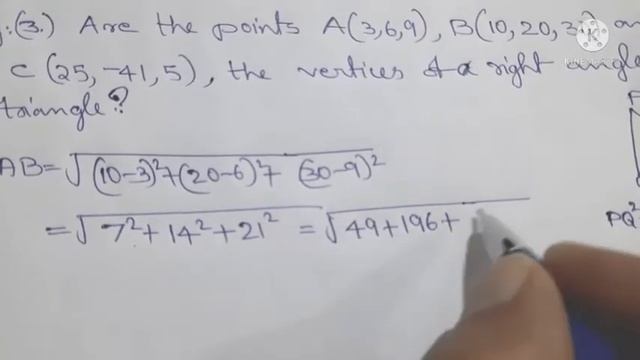 (3.) Are the points A(3,6,9), B(10,20,3
C (25,-41,5), the vertices of a right angle
triangle?
AB=√(10-3)²+(20-6)²+ (30-9)²
=√7²+14²+21² =√49+196+
PQ²